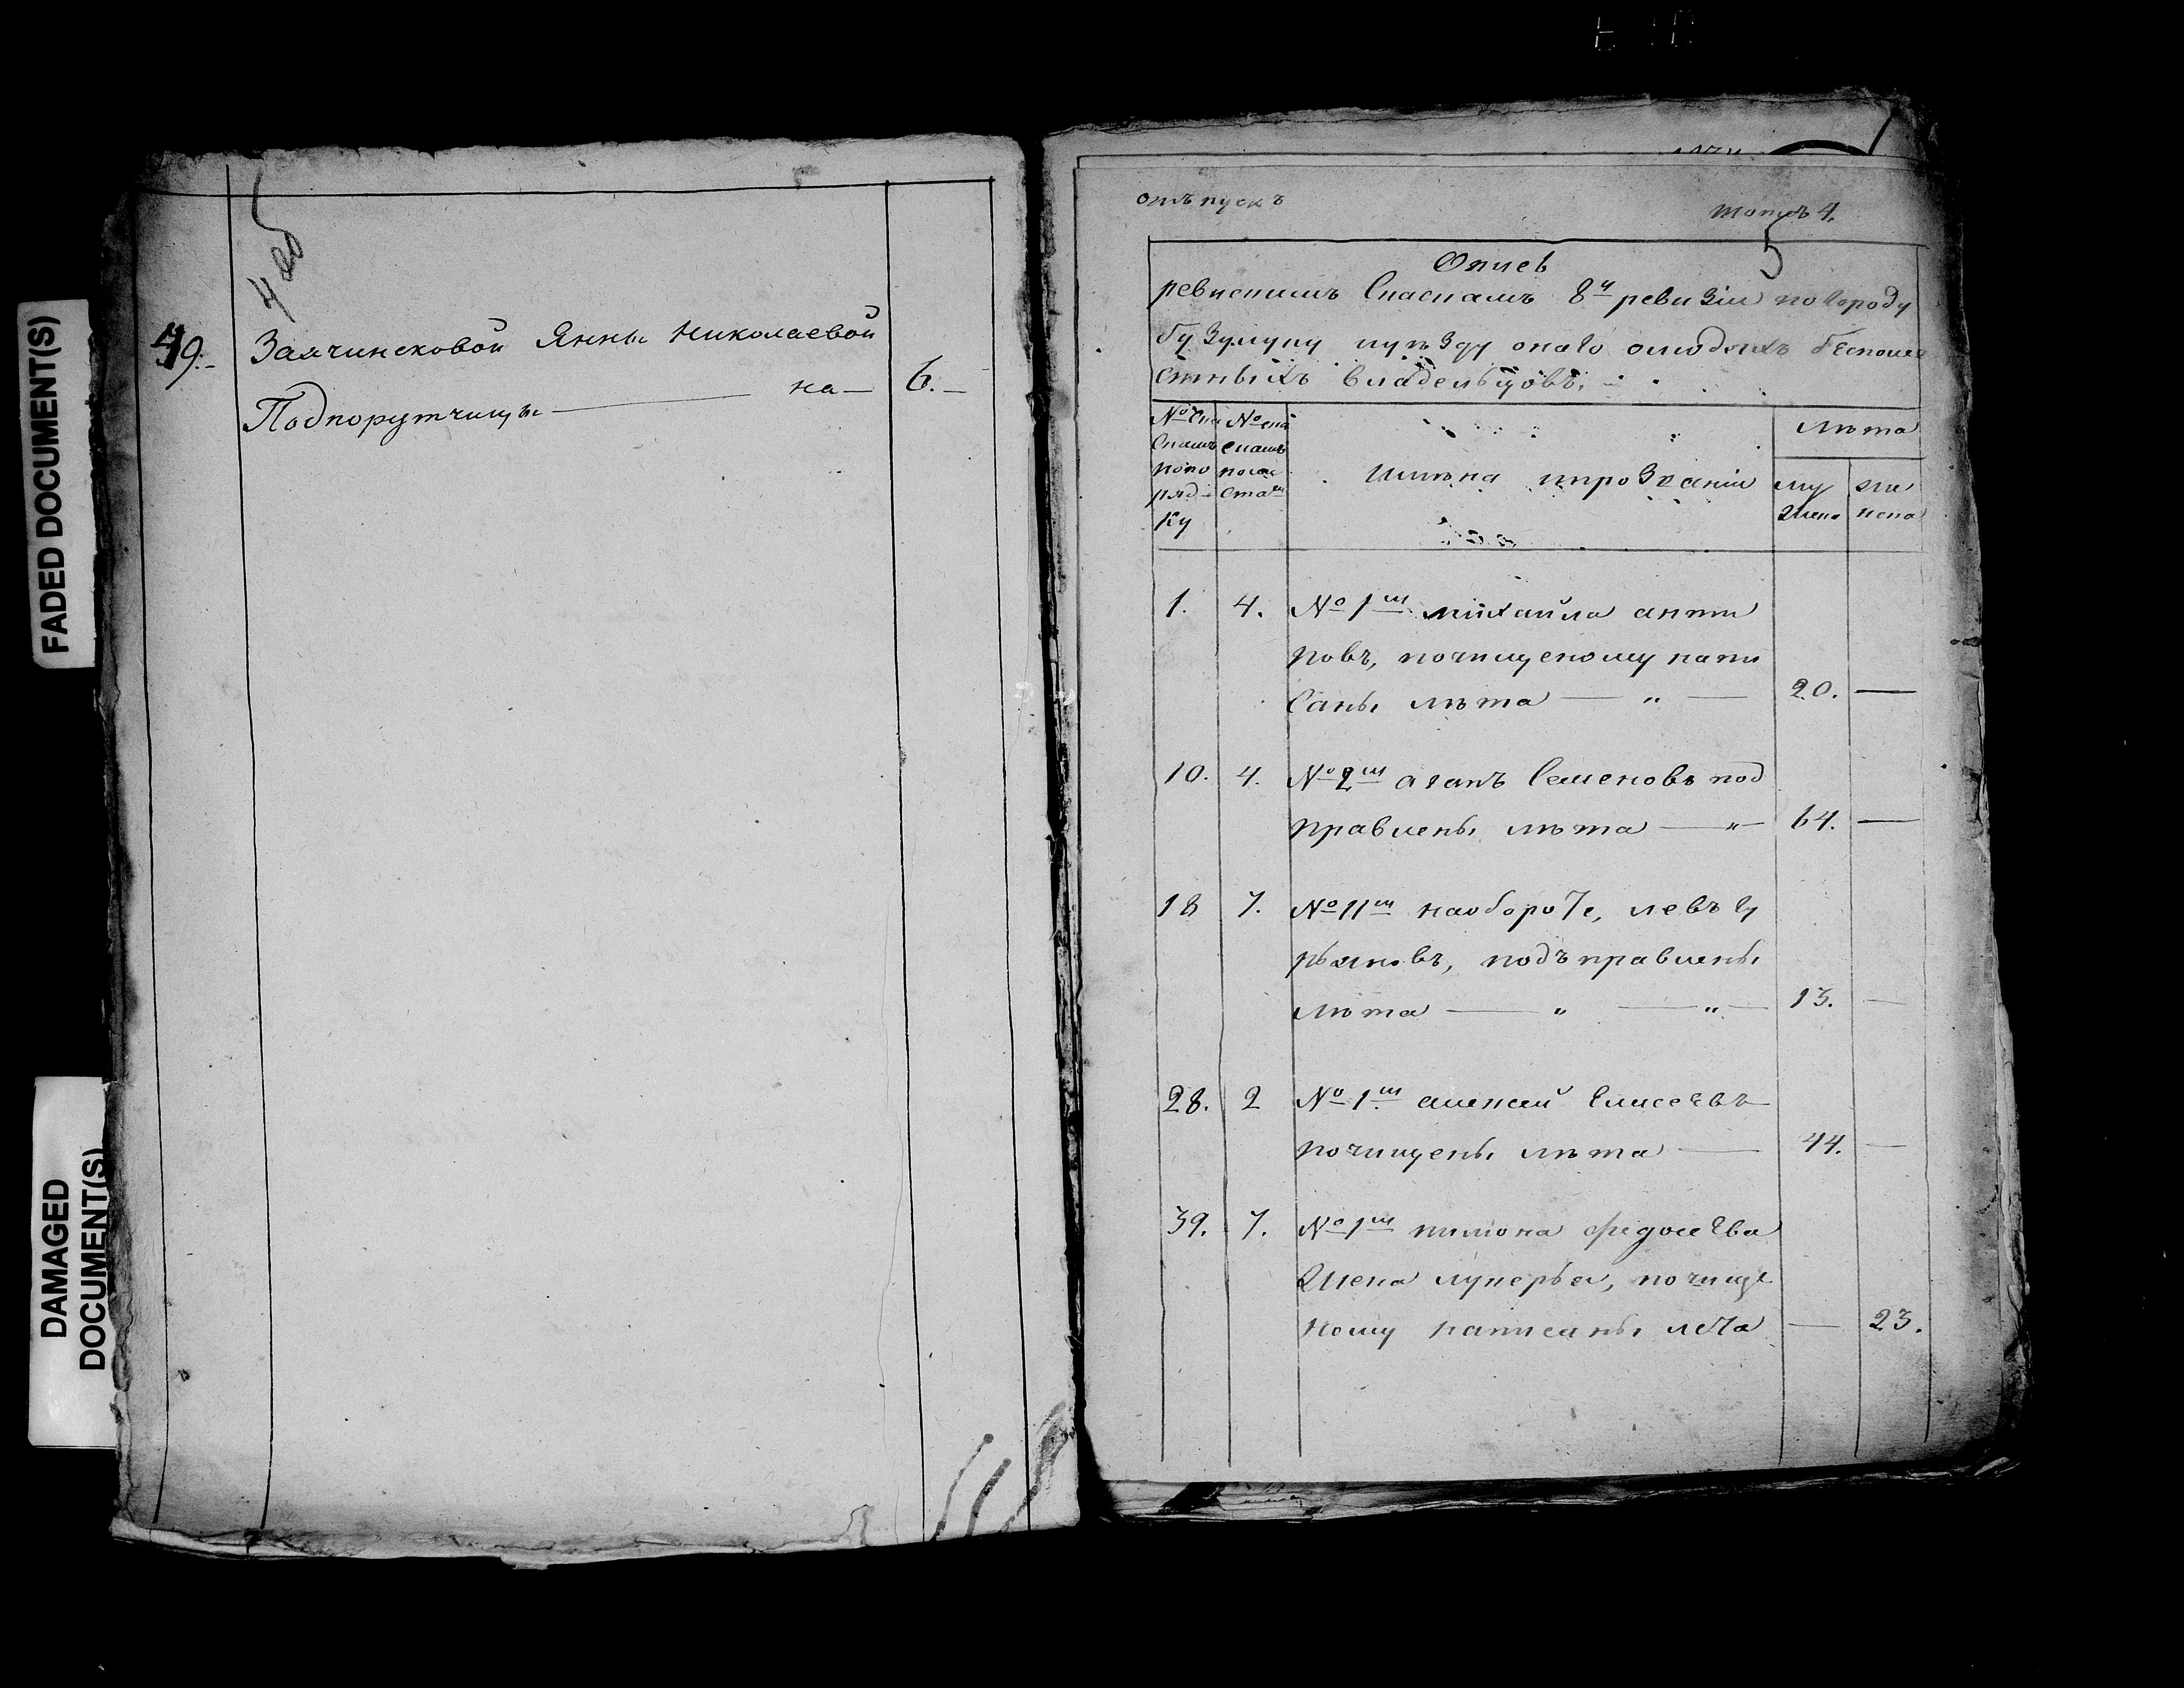 FADED DOCUMENT(S)
DAMAGED
DOCUMENT(S)
4 об
49.
Заячинсковой Анны Николаевой
Подпорутчицы — на — 6. —
отъпускъ
томъ 4.
5
Опись
ревискимъ Спаскамъ 8й ревизіи по городу
бузулуку иуѣзду онаго олюдяхъ беспоме
стныхъ владельцовъ.
№ спи №
скамъ
попо
ряд
ку
имѣна ипрозваніи
Лѣта
му жс
жска нска
1. 4. № 1й михайла анти
повъ, почищеному напи
саны лѣта — „ — 20. —
10. 4. № 2й агапъ Семеновъ под
правлены лѣта — „ — 64. —
18 7. № 11й наоборотѣ, левъ гу
рьяновъ, подъправлены
лѣта — „ — „ — 13. —
28. 2 № 1й алексей Елисеевъ
почищены лѣта — 44. —
39. 7. № 1й пимона федосеева
жена лукерья, почище
ному написаны лета — 23.